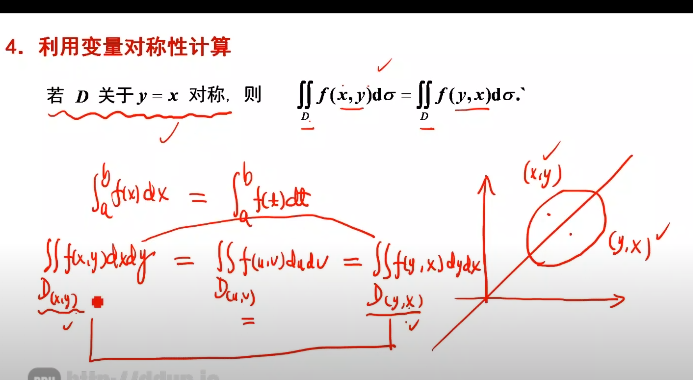 4. 利用变量对称性计算
若 D 关于 y = x 对称, 则 ∬_D f(x,y)dσ = ∬_D f(y,x)dσ.
∫_a^b f(x)dx = ∫_a^b f(t)dt
(x,y)
(y,x)
∬_{D(x,y)} f(x,y)dxdy = ∬_{D(u,v)} f(u,v)dudv = ∬_{D(y,x)} f(y,x)dydx
=